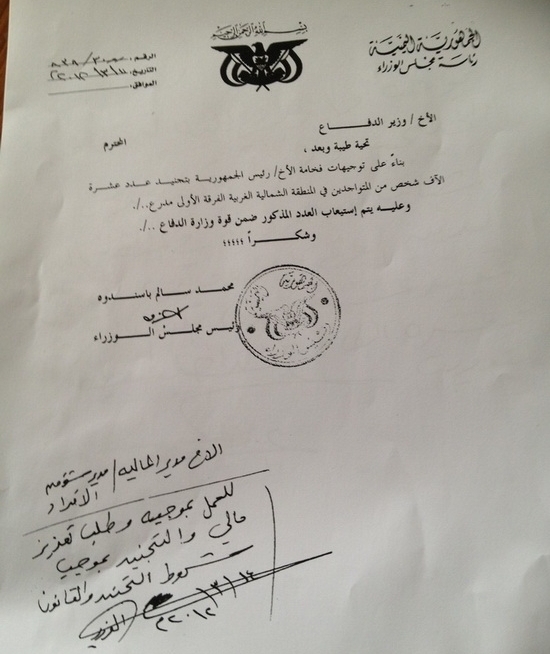 بسم الله الرحمن الرحيم
الجمهورية اليمنية
رئاسة مجلس الوزراء
الرقم:
التاريخ:
الموافق:
الأخ / وزير الدفـــاع
المحترم
تحية طيبة وبعد ،
بناءً على توجيهات فخامة الأخ/ رئيس الجمهورية بتجنيد عدد عشرة
الآف شخص من المتواجدين في المنطقة الشمالية الغربية الفرقة الأولى مدرع ../.
وعليه يتم إستيعاب العدد المذكور ضمن قوة وزارة الدفاع ../.
وشكـــراً ،،،،،
محمد سالم باسندوه
رئيس مجلس الـــوزراء
الاخ مدير المالية/ مدير شئون
الافراد
للعمل بموجبه وطلب تعزيز
مالي والتجنيد بموجب
شروط التجنيد والقانون